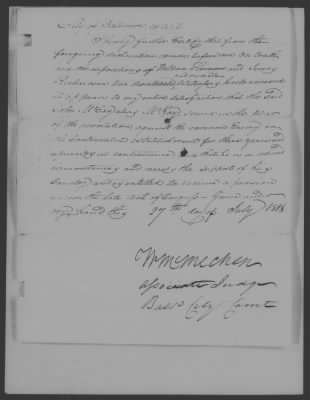 City of Baltimore, to wit
I hereby further Certify that from the
foregoing declaration made before me on oath
and the depositions of William
and
it appears to my entire satisfaction that the said
John served in the War
of the revolution against the common Enemy on
the Continental establishment for three years and
upwards in continuance and that he is in reduced
circumstances and needs the support of his
Country and is entitled to receive a pension
under the late act of Congress - Given under
my hand this 27th day of July 1818
Wm McMechen
Associate Judge
Balt City Court